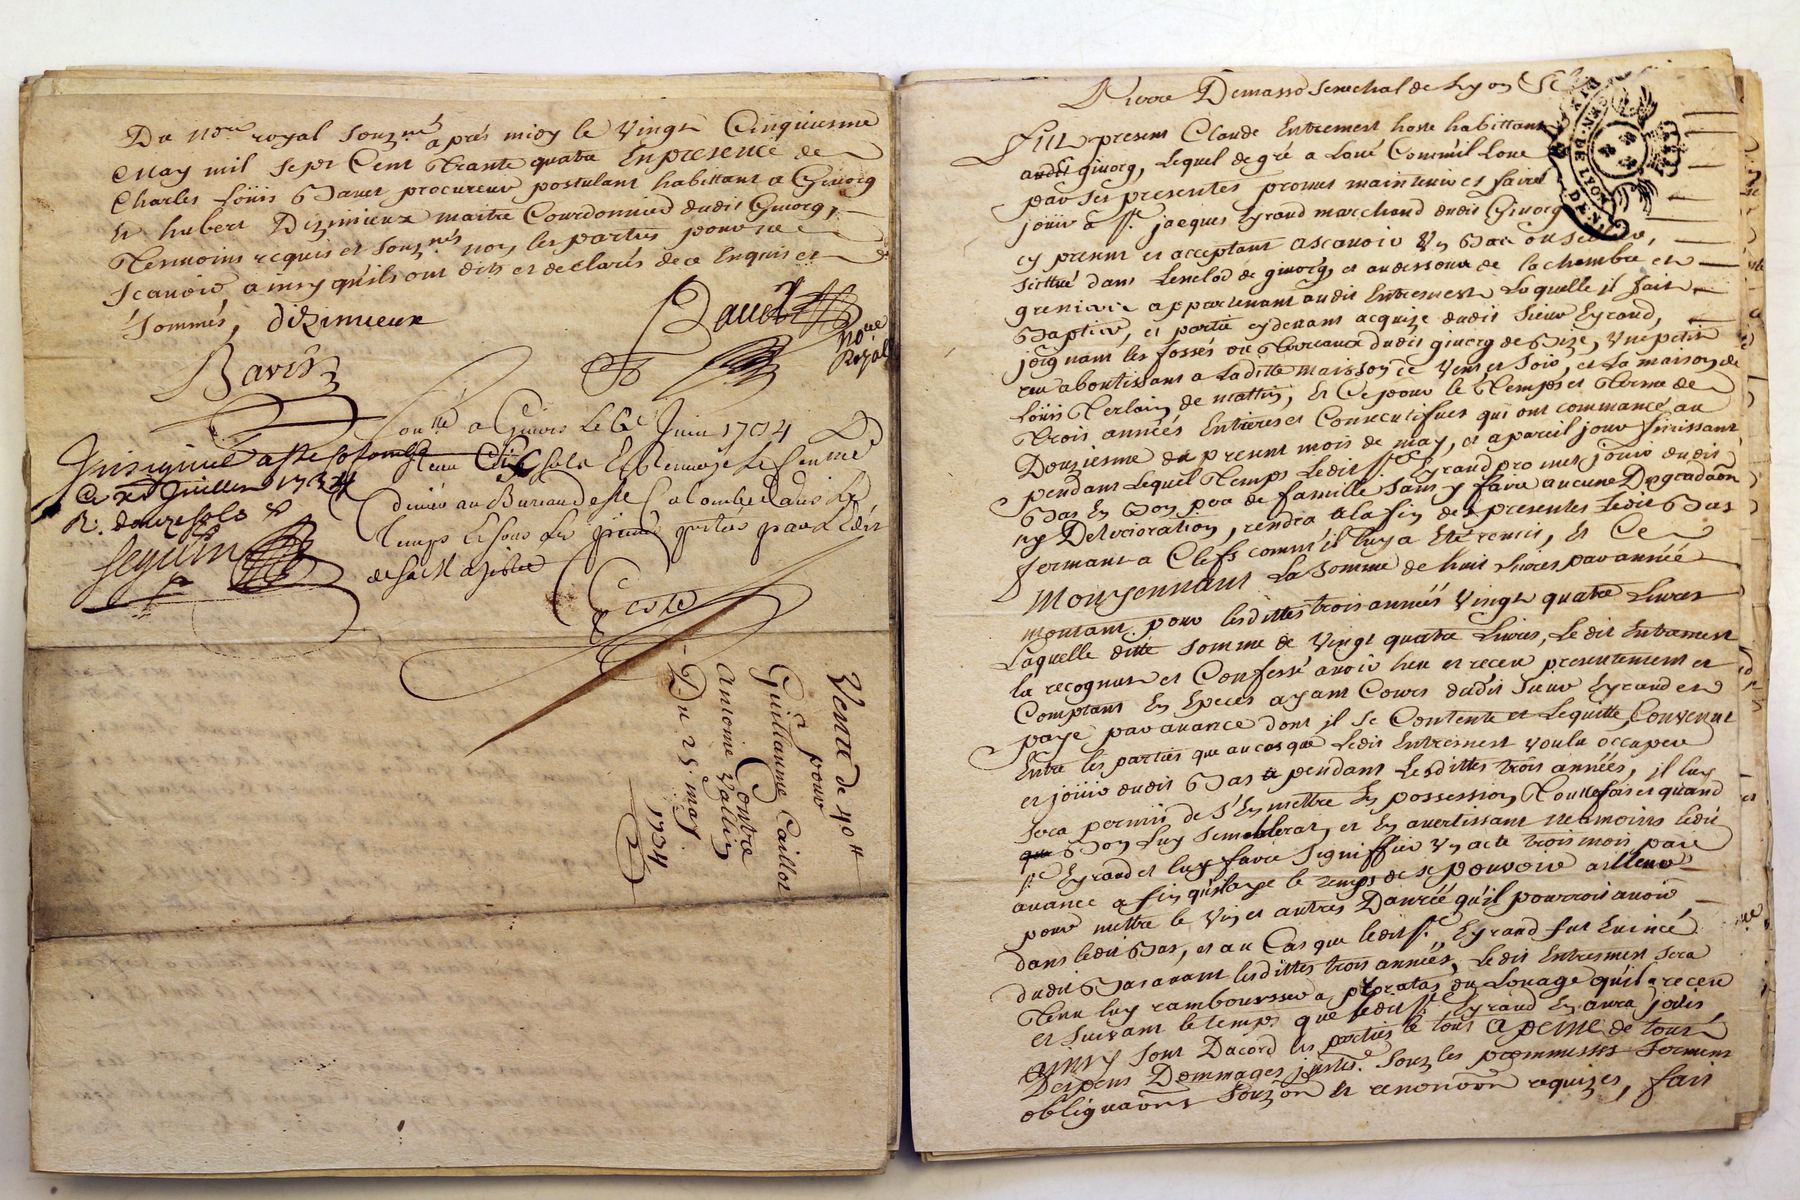 Du Nore royal Souzné après midy le Vingt Cinquiesme
May mil Sept Cent Trante quatre En presence de
Charles Loüis Bauet procureur postulant habittant a Giuorg
et hubert Dizimieux maitre Courdonnier dudit Giuorg,
Tesmoins requis et Souznés non les parties pour ne
Scauoir ainsy qu'ils ont dits et declarés de ce Enquis et
Sommés, dizimieux
Baudt
nore
Royal
Conllé a Giuors Le 6e Juin 1734
Insigniué a Ste Colombe
Ce Juillet 1734
R. douze sols
Seguin
diniée au Bureau de Ste Colombe dans le
temps
Coste
Vente de 40tt
pour
Guillaume Caillot
Contre
Antoine Vallin
Du 25 may
1734
Pierre Demasso Senechal de Lyon
GEN. DE LYON
DEN.
Fut present Claude Entremest hoste habittant
audit giuorg, Lequel de gré a Loué Comm'il Loue
par Ses presentes promet maintenir et faire
joüir à Sr. jacques Eyraud marchand dudit Giuorg
cy present et acceptant ascauoir Vn Bas
Scittué dans Lenclôs de giuorg, et audessoux de la chambre et
grenier appartenant audit Entremest Laquelle il fait
Baptir, et partie cydeuant acquize dudit Sieur Eyraud,
joignant les fossés ou Terreaux dudit giuorg de Bize, Vne petite
rue aboutissant a Laditte maison de Vent et Soir, et La maison de
Loüis Terlain de mattin, Et Ce pour le Temps et Terme de
Trois années Entieres et Consecutifues qui ont commancé au
Douziesme du present mois de may, et a pareil jour finissant
pendant Lequel Temps Ledit Sr. Eyraud promet joüir dudit
Bas En Bon pere de famille Sans y faire aucune Degradaôn
ny Deterioration, rendra a la fin des presentes Ledit Bas
fermant a Clefs comm'il luy a Eté remis, Et Ce
Moyennant La Somme de huit Liures par année
montant pour lesdittes trois années Vingt quatre Liures
Laquelle ditte Somme de Vingt quatre Liures, Le dit Entremest
la recognust et Confessé auoir heu et receu presentement et
Comptant En Especes ayant Cours dudit Sieur Eyraud et
payé par auance dont il Se Contente et Lequitte, Convenut
Entre les parties que au cas que Ledit Entremest voulu occuper
et joüir dudit Bas pendant Lesdittes trois années, il luy
Sera permis de S'En mettre En possession Touttefois et quand
Bon Luy Semblerat, et En auertissant Neamoins ledit
Sr Eyraud et luy faire Signiffier Vn acte trois mois par
auance a fin qu'il aye le temps de se pouruoir ailleurs
pour mettre le Vin et autres Danrée qu'il pourroit auoir
dans ledit Bas, et au Cas que ledit Sr. Eyraud fut Euincé
dudit Bas auant lesdittes trois années, Le dit Entremest Sera
Tenu luy rambourser a proratas du Louage qu'il a receu
et Suiuant le temps que ledit Sr. Eyraud En aura joüis
ainsy Sont Dacord les parties le tout a peine de tous
Despens Dommages jnterts. Souz les prommesses Serment
obliguaôns Souzôn et renonôn requizes, fait